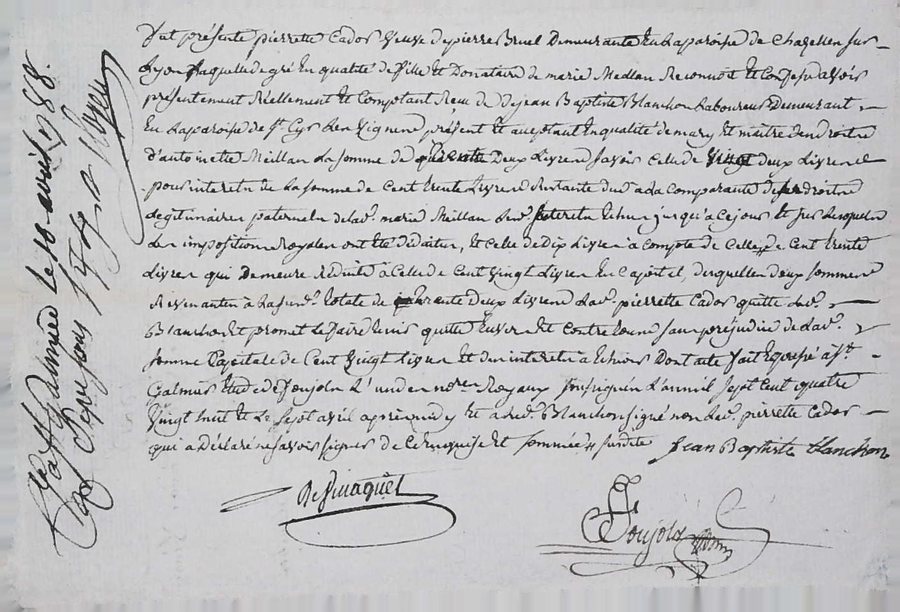 fut présente pierrette Cador Veuve de pierre Bruel Demeurante En la paroisse de Chazelles sur
Lyon Laquelle de gré En qualité de fille et Donataire de marie Meillan Reconnoit et Confesse d'avoir
présentement Réellement et Comptant Recu de Jean Baptiste Blanchon Laboureur Demeurant
En la paroisse de St Cyr les Vignes présent et acceptant En qualité de mary et maitre des droits
d'antoinette Meillan La somme de Deux Livres savoir Celle de Vingt deux Livres
pour interets de La somme de Cent trente Livres Restante due a la Comparante de ses droits
Legitimaires paternels de lad. marie Meillan interets Echus jusqu'a ce jour et sur lesquels
Les impositions Royales ont été déduites, et Celle de Dix Livres à Compte de Celle de Cent trente
Livres qui demeure Réduite à Celle de Cent Vingt Livres En Capital, desquelles deux sommes
Revenantes à totale de deux Livres Lad. pierrette Cador quitte led.
Blanchon et promet Le faire tenir quitte Envers et Contre tous sans préjudice de Lad.
somme Capitale de Cent Vingt Livres et des interets à Echoir Dont acte fait et passé à St
Galmier Etude de Joujols L'un des nores Royaux soussignés L'an mil sept Cent quatre
Vingt huit et Le sept avril après midy Et a led. Blanchon signé non Lad. pierrette Cador
qui a Déclaré ne savoir signer de Ce Enquise et sommée
Jean Baptiste blanchon
Joujols
à St Galmier Le 18 avril 1788.